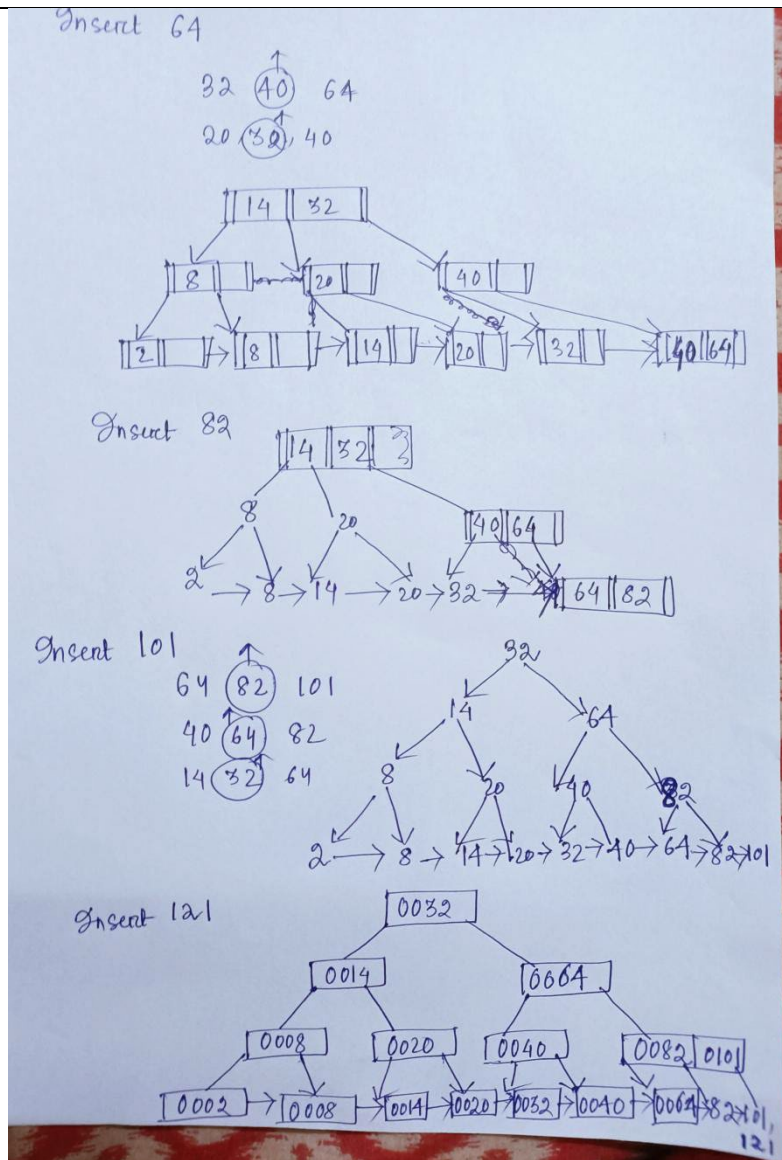 Insert 64
32 40 64
20 32, 40
14 32
8 20 40
2 8 14 20 32 40 64
Insert 82
14 32
8 20 40 64
2 8 14 20 32 64 82
Insert 101
64 82 101
40 64 82
14 32 64
32
14 64
8 20 40 82
2 8 14 20 32 40 64 82 101
Insert 121
0032
0014 0064
0008 0020 0040 0082 0101
0002 0008 0014 0020 0032 0040 0064 82 101,
121